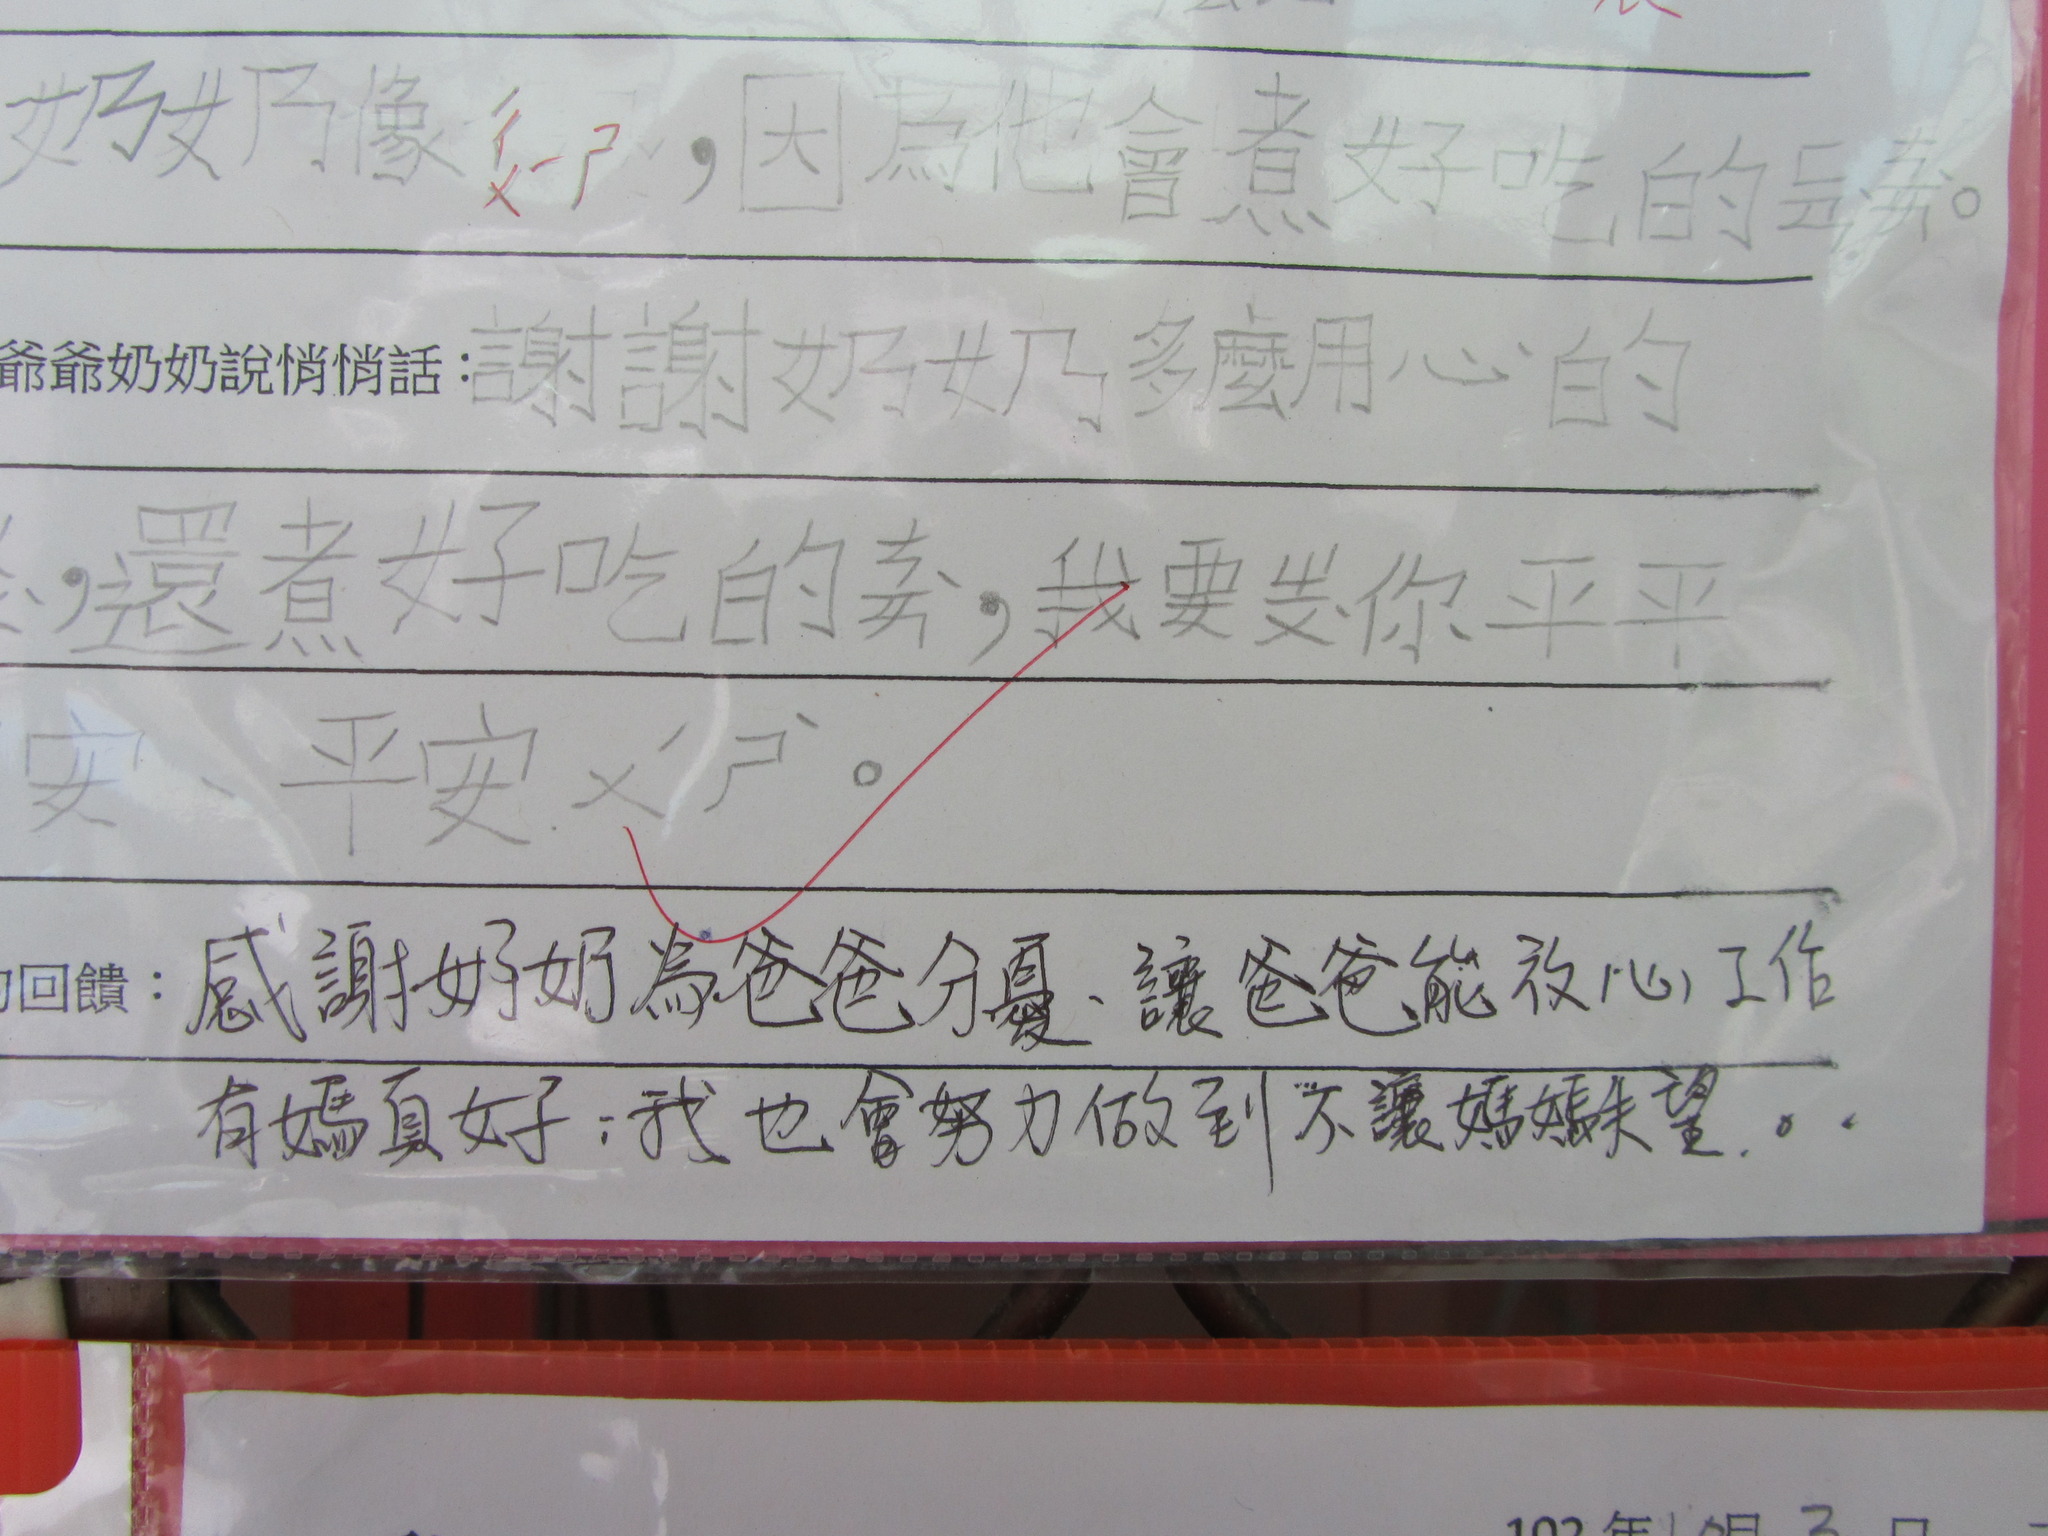 奶奶像，因為他會煮好吃的
爺爺奶奶說悄悄話：謝謝奶奶多麼用心的
，還煮好吃的，我要你平平
安、平安ㄨˊㄕˋ。
回饋：感謝奶奶為爸爸分憂、讓爸爸能放心工作
有媽真好；我也會努力做到不讓媽媽失望。。。
102年 月3日